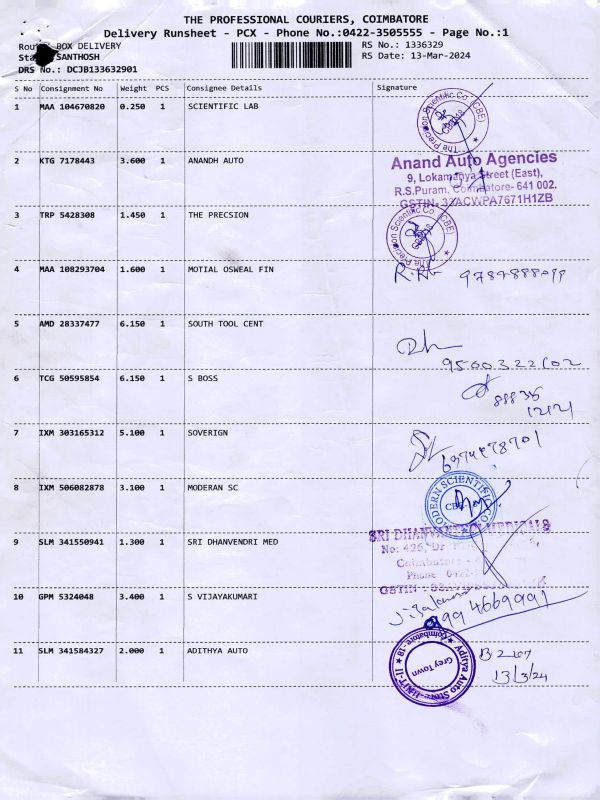 THE PROFESSIONAL COURIERS, COIMBATORE
Delivery Runsheet - PCX - Phone No.:0422-3505555 - Page No.:1
BOX DELIVERY
SANTHOSH
DRS No.: DCJB133632901
RS No.: 1336329
RS Date: 13-Mar-2024
S No Consignment No Weight PCS Consignee Details Signature
1 MAA 104670820 0.250 1 SCIENTIFIC LAB
The Precision Scientific Co (CBE)
2 KTG 7178443 3.600 1 ANANDH AUTO
Anand Auto Agencies
9, Lokamanya Street (East),
R.S.Puram, Coimbatore- 641 002.
GSTIN- 33ACWPA7671H1ZB
3 TRP 5428308 1.450 1 THE PRECSION
The Precision Scientific Co (CBE)
4 MAA 108293704 1.600 1 MOTIAL OSWEAL FIN
5 AMD 28337477 6.150 1 SOUTH TOOL CENT
6 TCG 50595854 6.150 1 S BOSS
7 IXM 303165312 5.100 1 SOVERIGN
8 IXM 506082878 3.100 1 MODERAN SC
MODERN SCIENTIFIC CO
9 SLM 341550941 1.300 1 SRI DHANVENDRI MED
SRI MEDICALS
No: 426, Dr
Coimbatore
Phone 0422
GSTIN
10 GPM 5324048 3.400 1 S VIJAYAKUMARI
994669991
11 SLM 341584327 2.000 1 ADITHYA AUTO
Aditya Auto Store-UNIT-II
Coimbatore-18
Grey Town
13/3/24